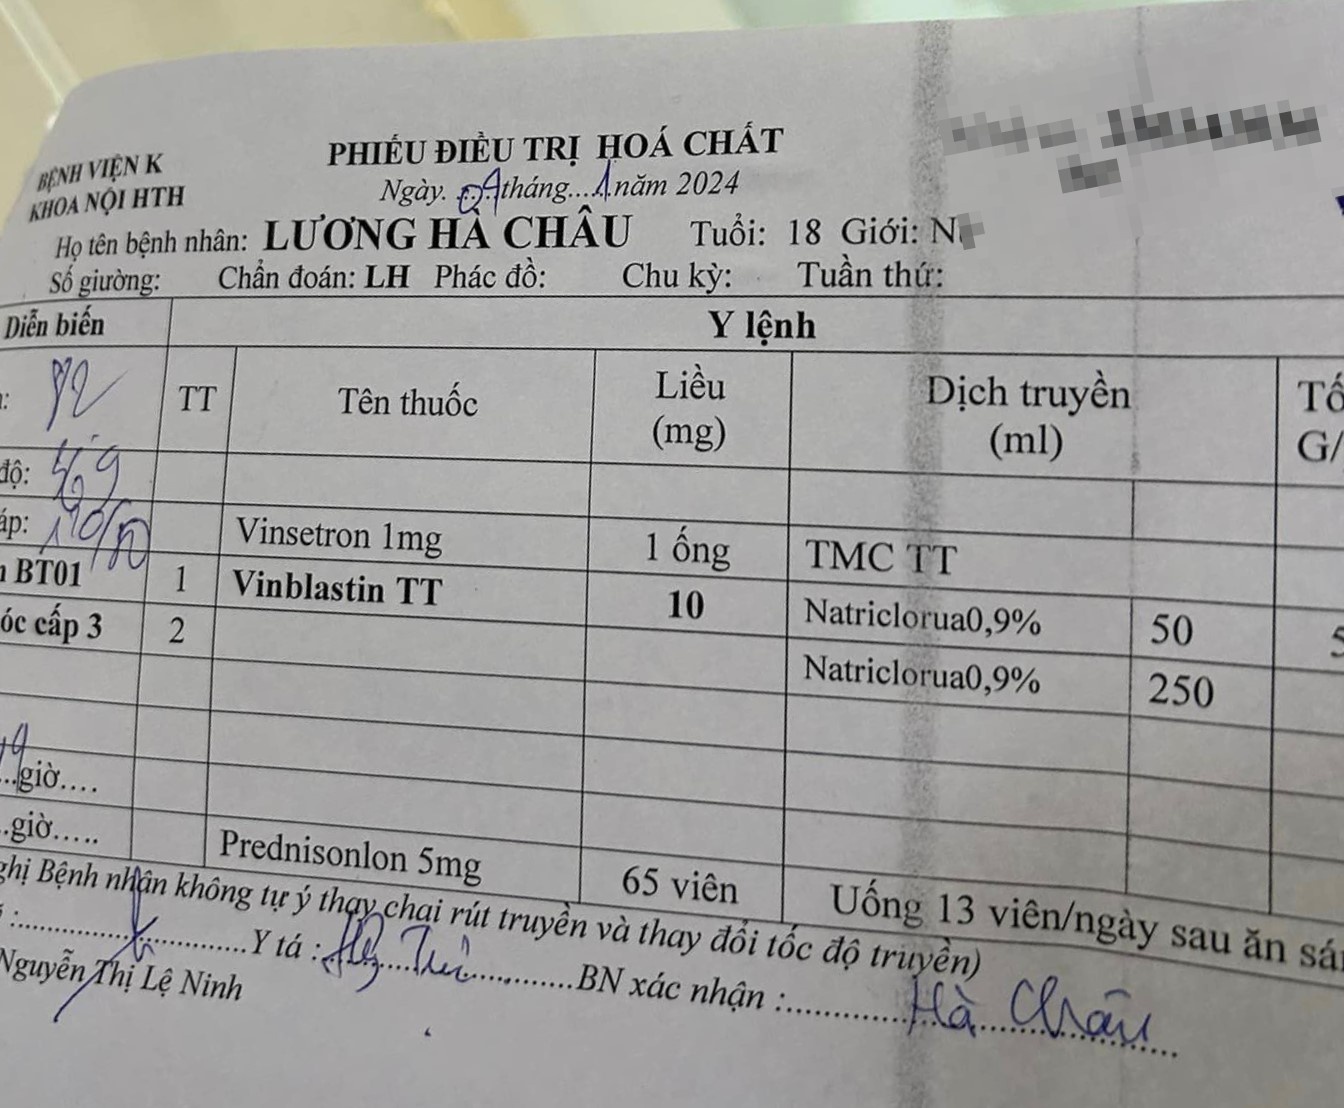 BỆNH VIỆN K
KHOA NỘI HTH
PHIẾU ĐIỀU TRỊ HOÁ CHẤT
Ngày. 09 tháng...1.năm 2024
Họ tên bệnh nhân: LƯƠNG HÀ CHÂU Tuổi: 18 Giới:
Số giường: Chẩn đoán: LH Phác đồ: Chu kỳ: Tuần thứ:
Diễn biến Y lệnh
TT Tên thuốc Liều (mg) Dịch truyền (ml) Tố G/
độ:
áp:
Vinsetron 1mg 1 ống TMC TT
BT01 1 Vinblastin TT 10 Natriclorua0,9% 50 5
óc cấp 3 2 Natriclorua0,9% 250
...giờ....
..giờ.....
Prednisonlon 5mg 65 viên Uống 13 viên/ngày sau ăn sá
ghị Bệnh nhân không tự ý thay chai rút truyền và thay đổi tốc độ truyền)
Y tá : BN xác nhận : Hà Châu
Nguyễn Thị Lệ Ninh